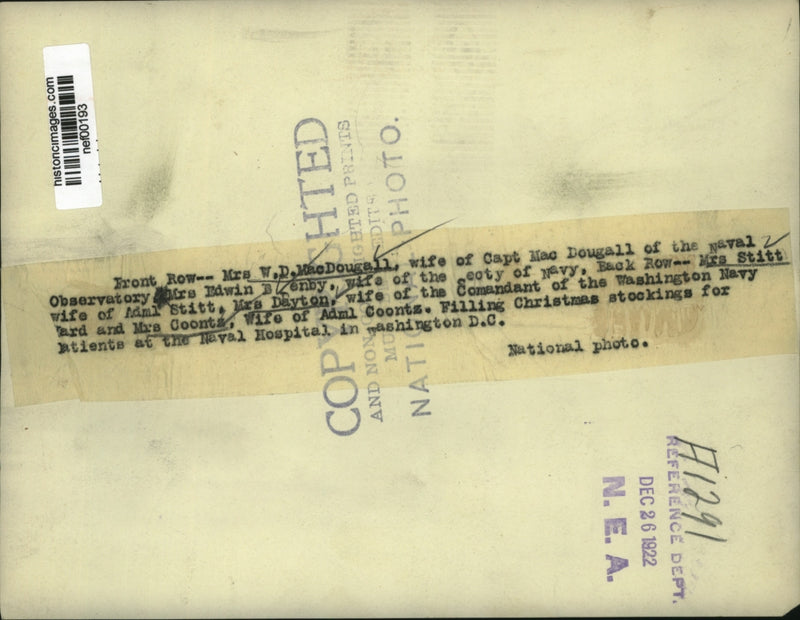 historicimages.com
nef00193
COPYRIGHTED
AND NON
NATIONAL PHOTO.
Front Row-- Mrs W.D.MacDougall, wife of Capt Mac Dougall of the Naval
Observatory, Mrs Edwin Denby, wife of the Secty of Navy. Back Row-- Mrs Stitt
wife of Adml Stitt, Mrs Dayton, wife of the Comandant of the Washington Navy
Yard and Mrs Coontz, Wife of Adml Coontz. Filling Christmas stockings for
patients at the Naval Hospital in Washington D.C.
National photo.
H1291
REFERENCE DEPT.
DEC 26 1922
N. E. A.